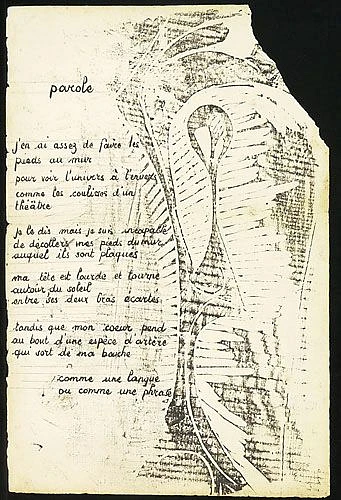 parole
j'en ai assez de faire les
pieds au mur
pour voir l'univers à l'envers
comme les coulisses d'un
théâtre
je le dis mais je suis incapable
de décollers mes pieds du mur
auquel ils sont plaqués
ma tête est lourde et tourne
autour du soleil
entre ses deux bras écartés
tandis que mon coeur pend
au bout d'une espèce d'artère
qui sort de ma bouche
comme une langue
ou comme une phrase